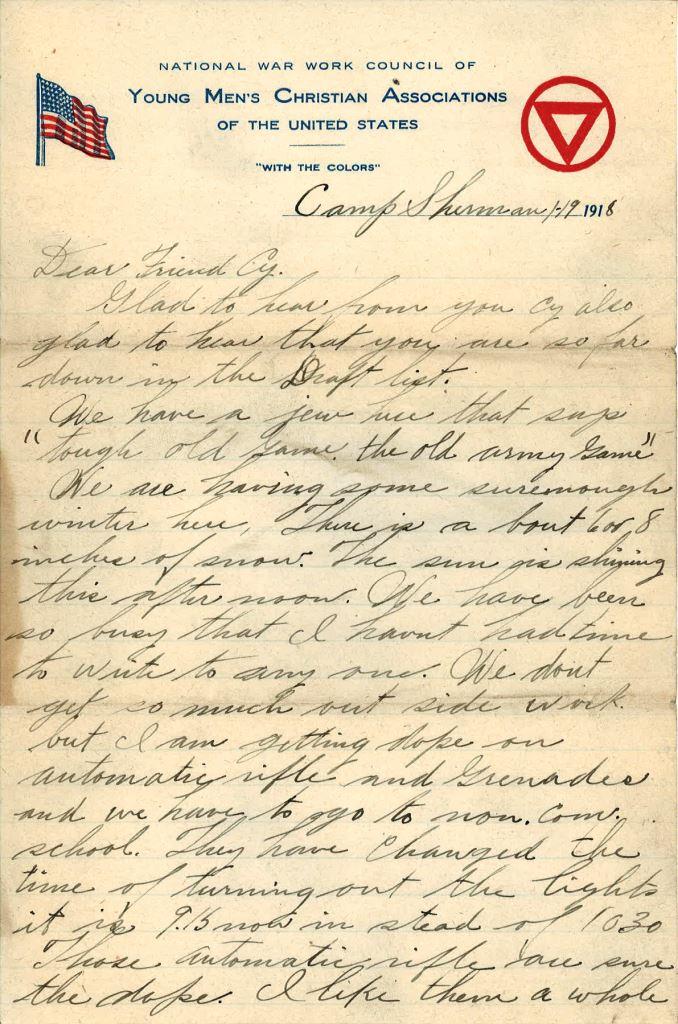 NATIONAL WAR WORK COUNCIL OF
YOUNG MEN'S CHRISTIAN ASSOCIATIONS
OF THE UNITED STATES
"WITH THE COLORS"
Camp Sherman 1-19 1918
Dear Friend Cy.
Glad to hear from you Cy also
glad to hear that you are so far
down in the Draft list.
We have a jew here that says
"tough old game. the old army Game"
We are having some surenough
winter here, There is a bout 6 or 8
inches of snow. The sun is shining
this after noon. We have been
so busy that I havnt had time
to write to any one. We dont
get so much out side work.
but I am getting dope on
automatic rifle and Grenades
and we have to go to non. com.
school. They have changed the
time of turning out the lights
it is 9.15 now in stead of 1030
Those automatic rifle are sure
the dope. I like them a whole